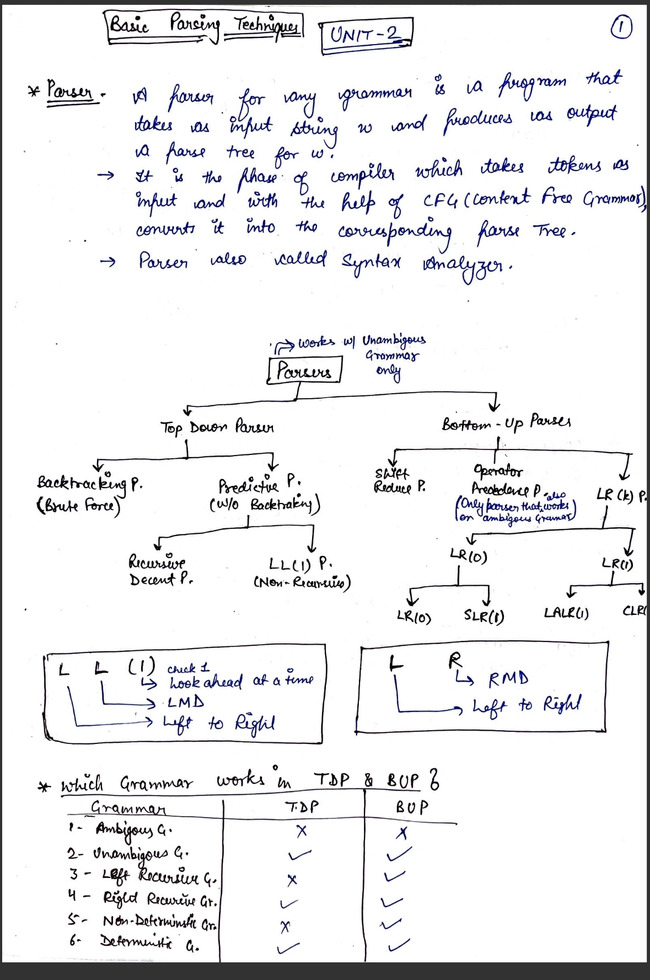 Basic Parsing Techniques
UNIT-2
1
* Parser - A parser for any grammar is a program that
takes as input string w and produces as output
a parse tree for w.
→ It is the phase of compiler which takes tokens as
input and with the help of CFG (Context Free Grammar),
converts it into the corresponding parse Tree.
→ Parser also called Syntax Analyzer.
→ works w/ Unambigous
Grammar
only
Parsers
Top Down Parser
Bottom-Up Parses
Backtracking P.
(Brute Force)
Predictive P.
(W/O Backtraking)
Shift
Reduce P.
Operator
Precedence P.
(Only parser that also works
on ambigous Gramar)
LR (k) P.
Recursive
Decent P.
LL(1) P.
(Non-Recursive)
LR(0)
LR(1)
LR(0)
SLR(1)
LALR(1)
CLR(
L L (1) check 1
Look ahead at a time
→ LMD
→ Left to Right
L R
RMD
→ Left to Right
* which Grammar works in TDP & BUP ?
Grammar TDP BUP
1- Ambigous G. × ×
2- Unambigous G. ✓ ✓
3- Left Recursive G. × ✓
4- Right Recursive Gr. ✓ ✓
5- Non-Deterministic Gr. × ✓
6- Deterministic G. ✓ ✓